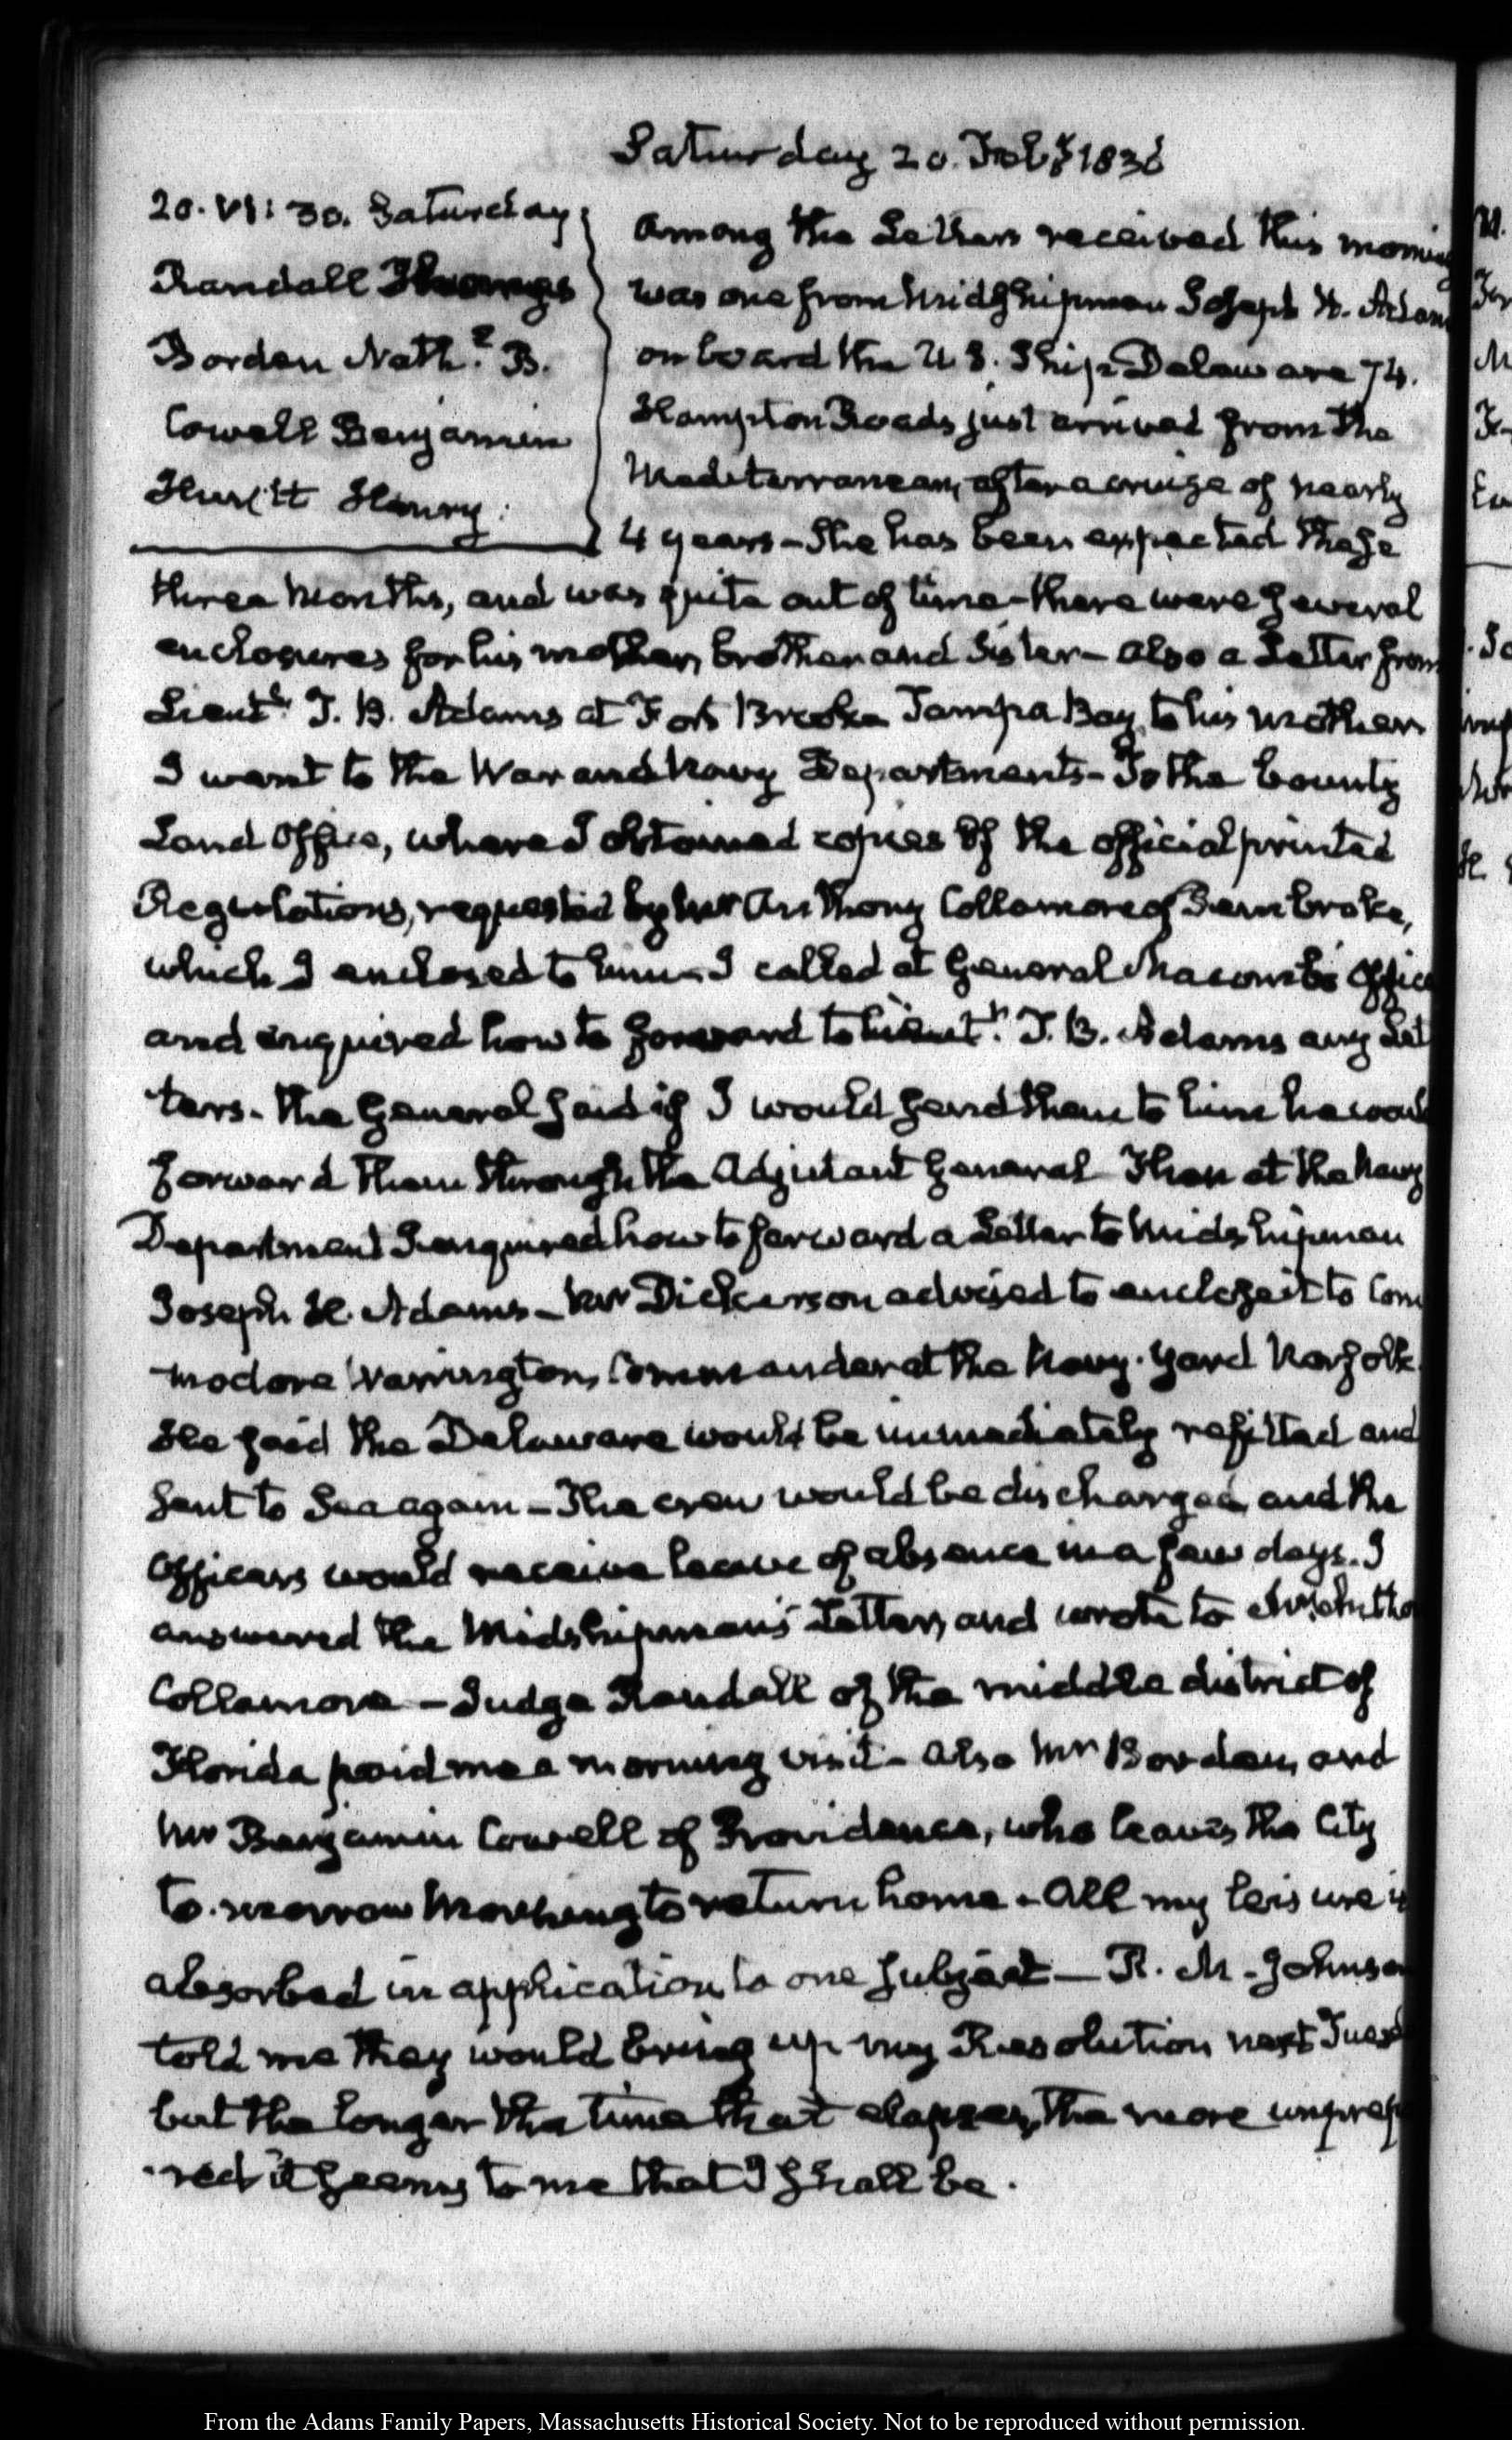 Saturday 20. Feby 1836
20. VI: 30. Saturday
Randall Thomas
Borden Nathl. B.
Cowell Benjamin
Huritt Henry.
Among the Letters received this morning
was one from Midshipman Joseph H. Adams
on board the U.S. Ship Delaware 74.
Hampton Roads just arrived from the
Mediterranean, after a cruize of nearly
4 years – She has been expected these
three Months, and was quite out of time – there were several
enclosures for his mother, brother and Sister – also a Letter from
Lieutt. T. B. Adams at Fort Brooke Tampa Bay, to his Mother
I went to the War and Navy Departments – To the Bounty
Land Office, where I obtained copies of the official printed
Regulations, requested by Mr Anthony Collamore of Pembroke,
which I enclosed to him – I called at General Macomb's Office
and enquired how to forward to Lieutt. T. B. Adams any Let
ters – the General said if I would send them to him he would
forward them through the Adjutant General – Then at the Navy
Department I enquired how to forward a Letter to Midshipman
Joseph H. Adams – Mr Dickerson advised to enclose it to Com
modore Warrington, Commander at the Navy-Yard Norfolk
He said the Delaware would be immediately refitted and
sent to Sea again – The crew would be discharged and the
Officers would receive leave of absence in a few days. I
answered the Midshipman's Letter, and wrote to
Collamore – Judge Randall of the middle district of
Florida paid me a morning visit – also Mr Borden, and
Mr Benjamin Cowell of Providence, who leaves the City
to-morrow Morning to return home – All my leisure is
absorbed in application to one subject – R. M. Johnson
told me they would bring up my Resolution next Tuesd
but the longer the time that elapses, the more unprep
red it seems to me that I shall be.
From the Adams Family Papers, Massachusetts Historical Society. Not to be reproduced without permission.